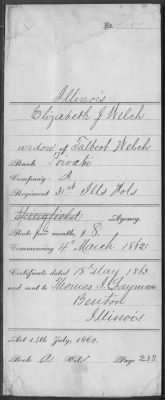 No.
Illinois
Elizabeth J Welch
widow of Talbot Welch
Rank Private
Company A
Regiment 31st Ills Vols
Springfield Agency.
Rate per month, $ 8.
Commencing 4th March 1862
Certificate dated 18th May 1863
and sent to Thomas J. Layman
Benton
Illinois
Act 14th July, 1862.
Book A Vol. Page 238